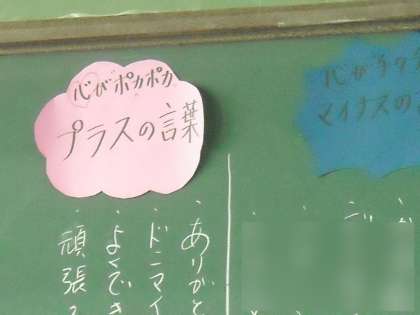 心がポカポカ
プラスの言葉
マイナスの
・ありがと
・ドンマイ
・よくでき
・頑張